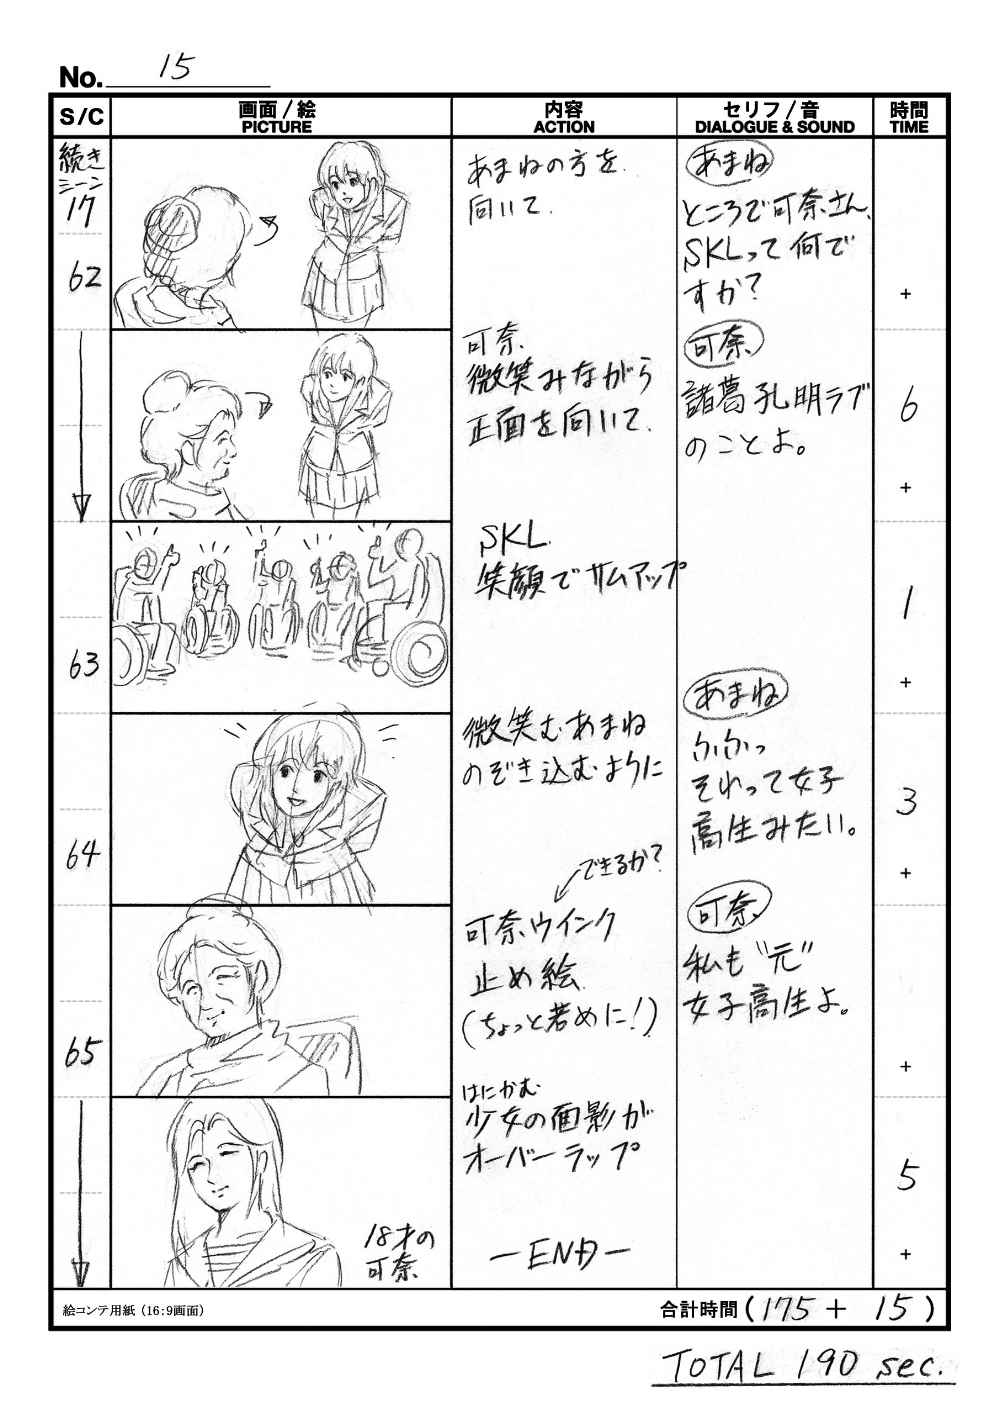 No. 15
S/C
画面/絵
PICTURE
内容
ACTION
セリフ/音
DIALOGUE & SOUND
時間
TIME
続き
シーン
17
62
あまねの方を
向いて.
あまね
ところで可奈さん、
SKLって何で
すか?
+
可奈.
微笑みながら
正面を向いて.
可奈
諸葛孔明ラブ
のことよ。
6
+
63
SKL.
笑顔でサムアップ
1
+
64
微笑むあまね
のぞき込むように
あまね
ふふっ
それって女子
高生みたい。
3
+
65
できるか?
可奈ウインク
止め絵.
(ちょっと若めに!)
可奈
私も"元"
女子高生よ。
+
はにかむ
少女の面影が
オーバーラップ
18才の
可奈
5
-END-
+
絵コンテ用紙(16:9画面)
合計時間(175+15)
TOTAL 190 sec.